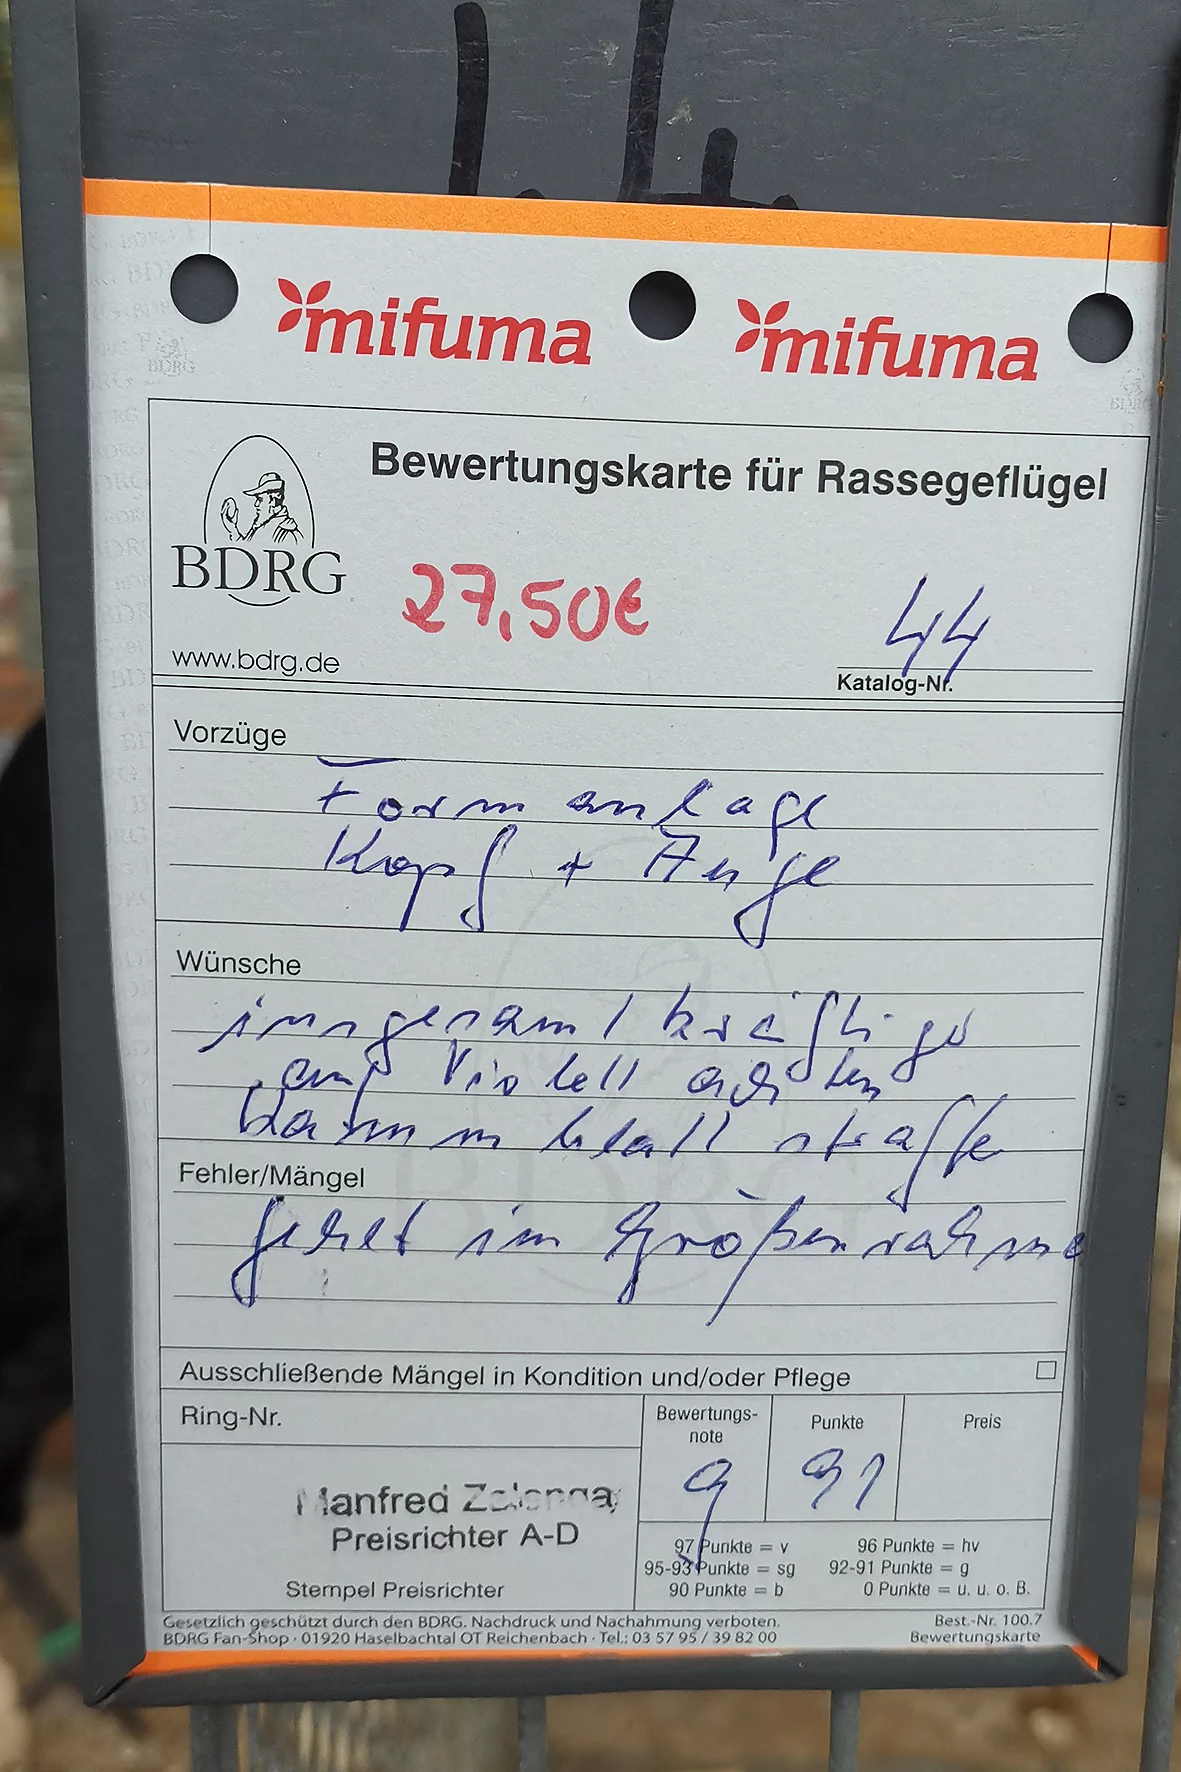 mifuma mifuma
Bewertungskarte für Rassegeflügel
BDRG
27,50€
44
www.bdrg.de
Katalog-Nr.
Vorzüge
Formanlage
Kopf + Auge
Wünsche
insgesamt kräftiger
auf Violett achten
Kammblatt straffer
Fehler/Mängel
im Größenrahmen
Ausschließende Mängel in Kondition und/oder Pflege
Ring-Nr.
Bewertungs-
note
Punkte
Preis
g
91
Manfred
Preisrichter A-D
Stempel Preisrichter
97 Punkte = v 96 Punkte = hv
95-93 Punkte = sg 92-91 Punkte = g
90 Punkte = b 0 Punkte = u. u. o. B.
Gesetzlich geschützt durch den BDRG. Nachdruck und Nachahmung verboten. Best.-Nr. 100.7
BDRG Fan-Shop · 01920 Haselbachtal OT Reichenbach · Tel.: 03 57 95 / 39 82 00 Bewertungskarte